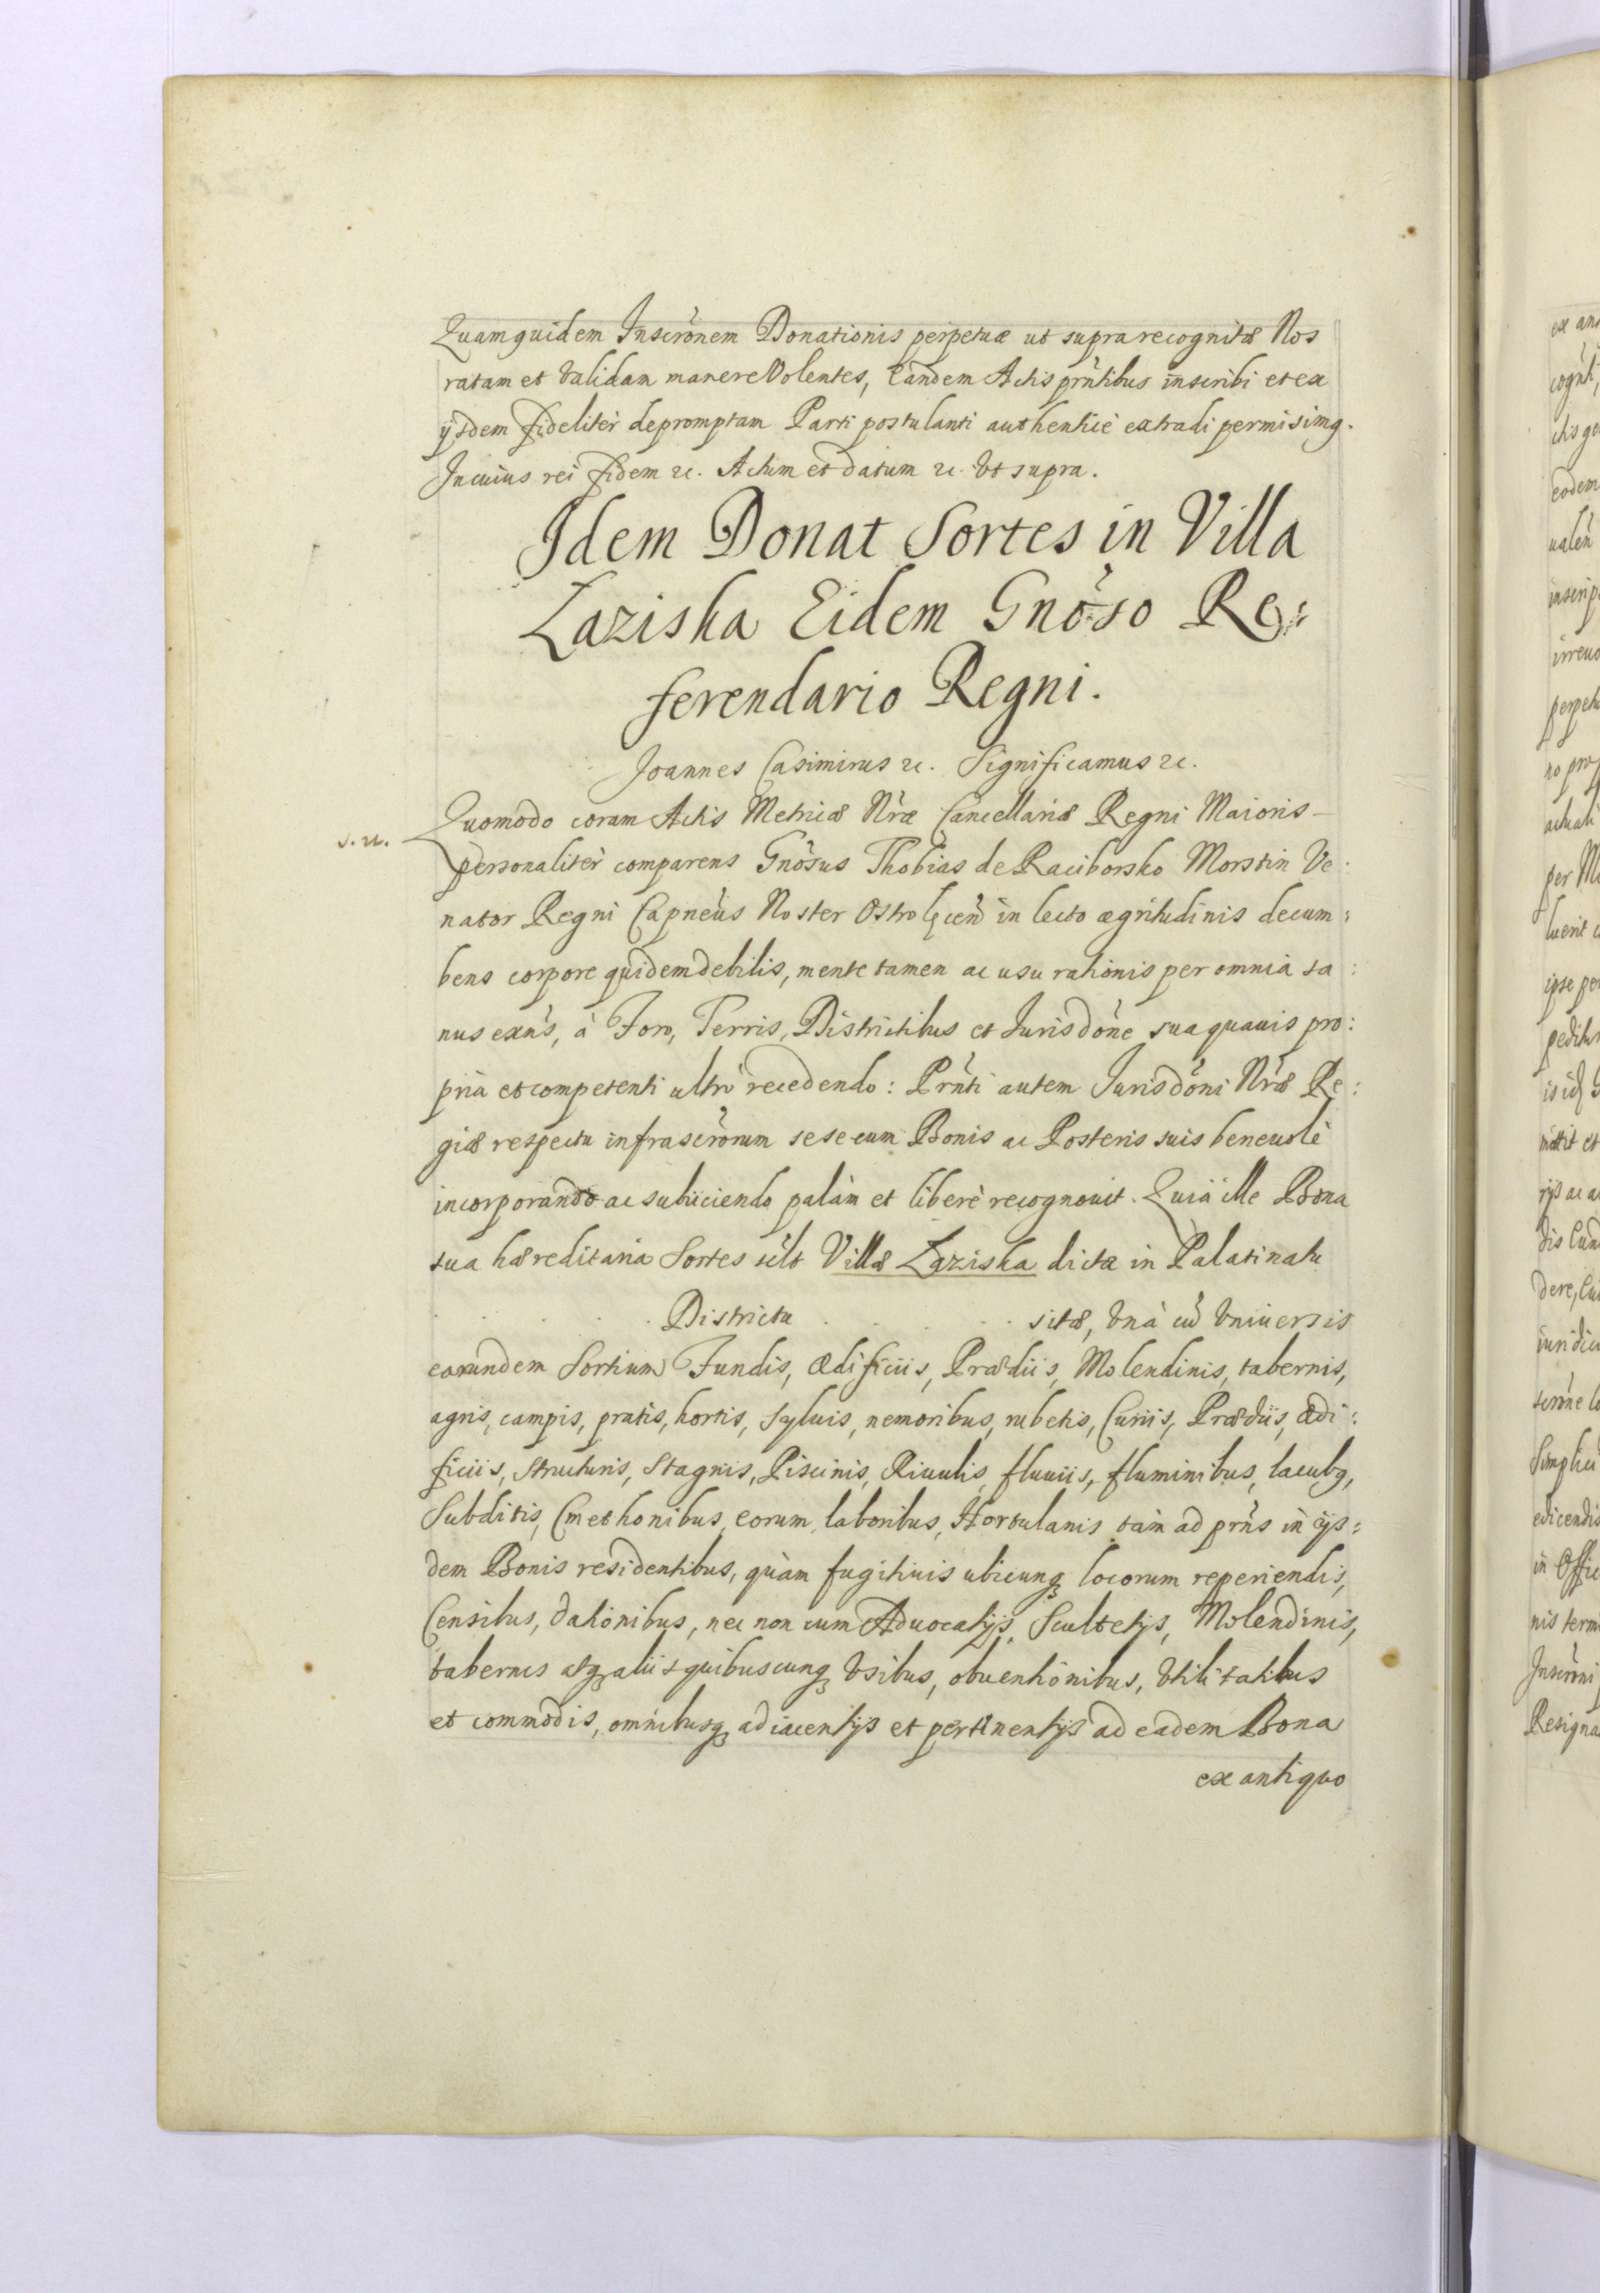 Quam quidem Inscrōnem Donationis perpetuæ ut supra recognitæ Nos
ratam et validam manere Volentes, Eandem Actis prñtibus inscribi et ex
ijsdem fideliter depromptam Parti postulanti authentice extradi permisimg.
In cuius rei fidem &c. Actum et datum &c. Vt supra.
Idem Donat Sortes in Villa
Laziska Eidem Gnōso Re:
ferendario Regni.
Joannes Casimirus &c. Significamus &c.
Quomodo coram Actis Metricæ Nr̃æ Cancellariæ Regni Maioris
personalitèr comparens Gnōsus Thobias de Raciborsko Morstin Ve
nator Regni Capneūs Noster in lecto ægritudinis decum:
bens corpore quidem debilis, mente tamen ac usu rationis per omnia sa:
nus exñs, à Foro, Terris, Districtibus et Jurisdōne sua quavis pro:
pria et competenti ultrò recedendo: Prñti autem Jurisdōni Nr̃æ Re:
giæ respectu infrascrōrum sese cum Bonis ac Posteris suis beneuolè
incorporando ac subiiciendo palàm et liberè recognouit. Quia ille Bona
sua hæreditaria Sortes scĩlt Villæ Laziska dictæ in Palatinatu
Districtu sitæ, Vnà cū Vniuersis
earundem Sortium Fundis, Ædificiis, Prædiis, Molendinis, tabernis,
agris, campis, pratis, hortis, Syluis, nemoribus, rubetis, Curiis, Prædiis, Ædi:
ficiis, structuris, Stagnis, Piscinis, Riuulis, fluuiis, fluminibus, lacubg,
Subditis, Cmethonibus, eorum laboribus, Hortulanis tàm ad prñs in ijs:
dem Bonis residentibus, quàm fugitiuis ubicunq locorum reperiendis,
Censibus, dationibus, nec non cum Aduocatijs, Scultetijs, Molendinis,
tabernis atq aliis quibuscunq Vsibus, obuentionibus, Vtilitatibus
et commodis, omnibusq adiacentijs et pertinentijs ad eadem Bona
ex antiquo